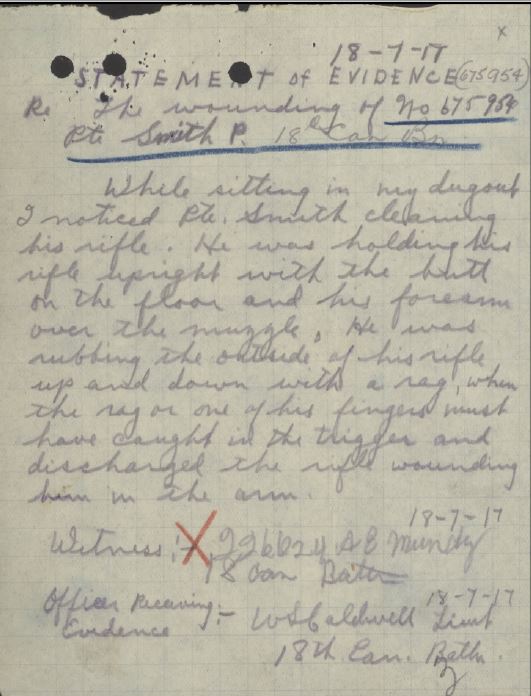 x
18-7-17
STATEMENT of EVIDENCE (675954)
Re The wounding of No 675954
Pte Smith P. 18th Can Bn
While sitting in my dugout
I noticed Pte. Smith cleaning
his rifle. He was holding his
rifle upright with the butt
on the floor and his forearm
over the muzzle. He was
rubbing the outside of his rifle
up and down with a rag, when
the rag or one of his fingers must
have caught in the trigger and
discharged the rifle wounding
him in the arm.
18-7-17
Witness:- X A E
18 Can Battn
Officer Receiving:- 18-7-17
Evidence W S Caldwell Lieut
18th Can. Battn.